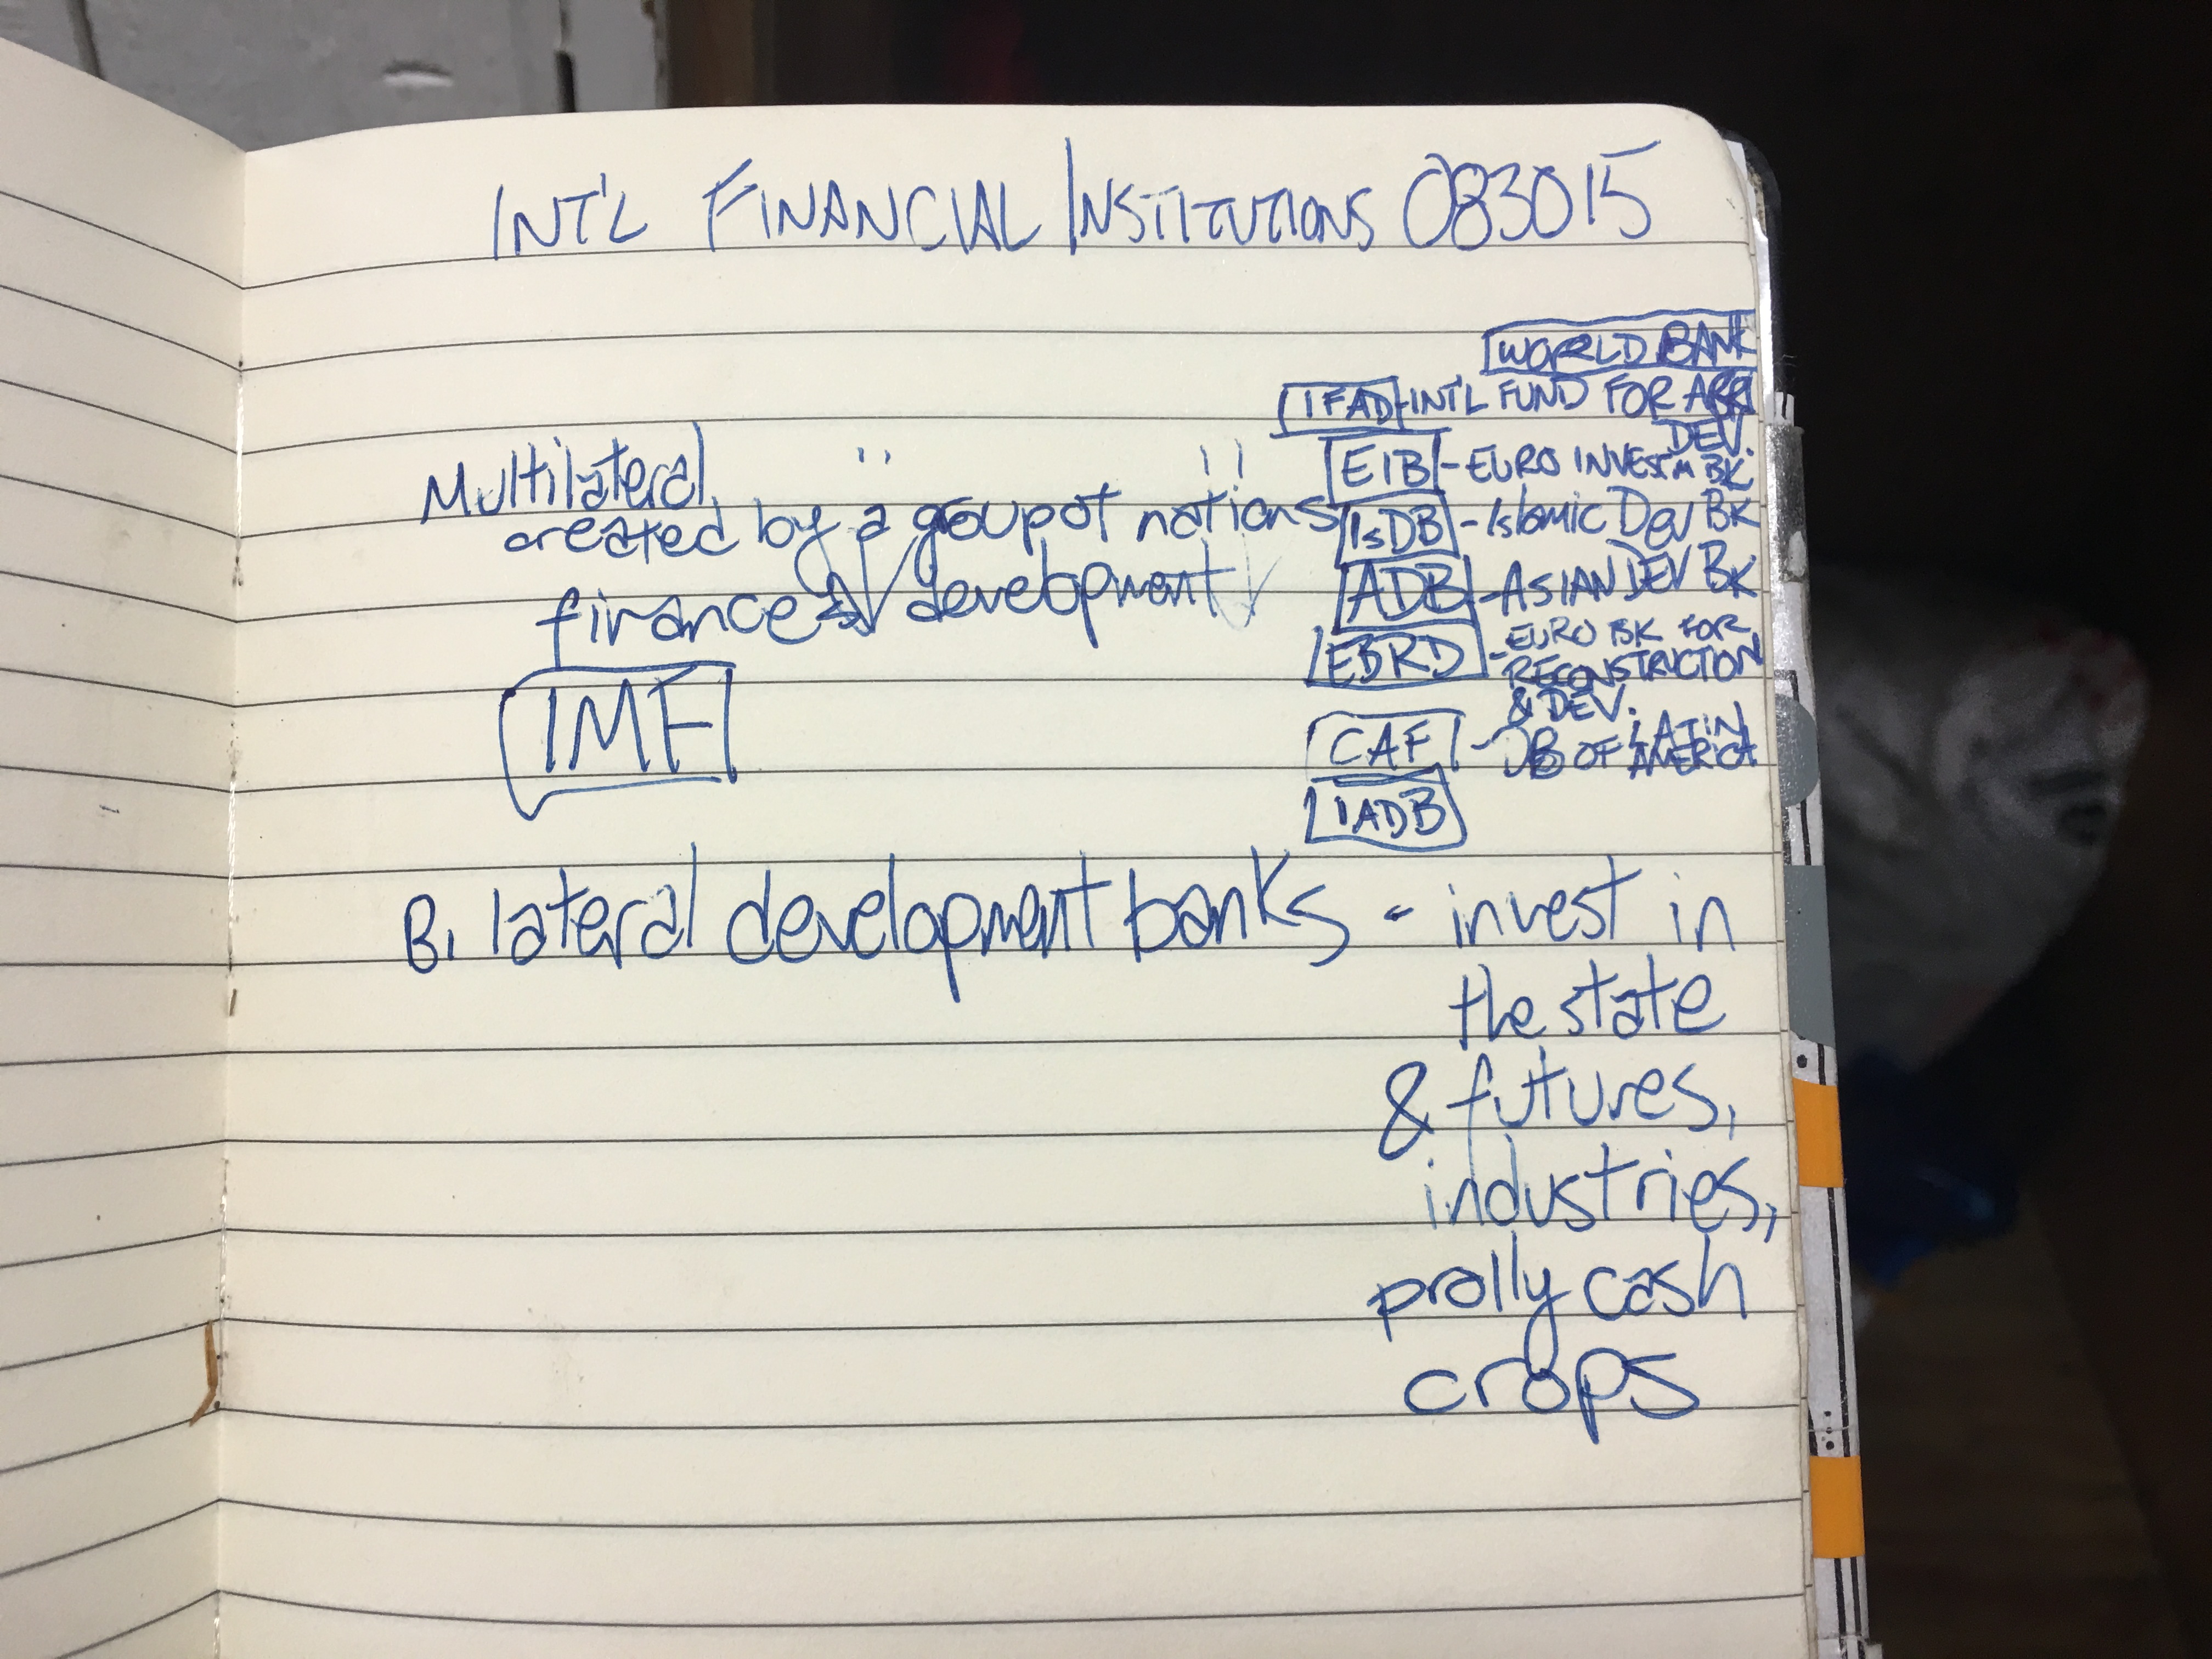 INT'L FINANCIAL INSTITUTIONS 083015
WORLD BANK
IFAD-INT'L FUND FOR AGRI
DEV.
EIB-EURO INVESTM BK
IsDB-Islamic Dev BK
ADB-ASIAN DEV BK
EBRD-EURO BK FOR
RECONSTRUCTION
& DEV.
CAF-DB OF LATIN
AMERICA
IADB
Multilateral
created by a group of nations
finance development
IMF
Bilateral development banks - invest in
the state
& futures,
industries,
prolly cash
crops